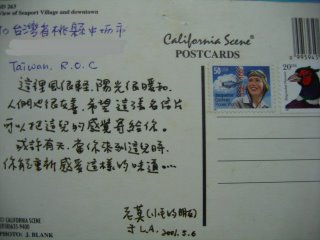 SD 263
View of Seaport Village and downtown
TO 台灣省桃
Taiwan, R.O.C
California Scene
POSTCARDS
這裡風很輕, 陽光很暖和
人們也很友善, 希望這張名信片
可以把這兒的感覺寄給你。
或許有天, 當你來到這兒時
你能重新感受這樣的味道…
於 L.A. 2001.5.6
50
29
© CALIFORNIA SCENE
PHOTO: J. BLANK